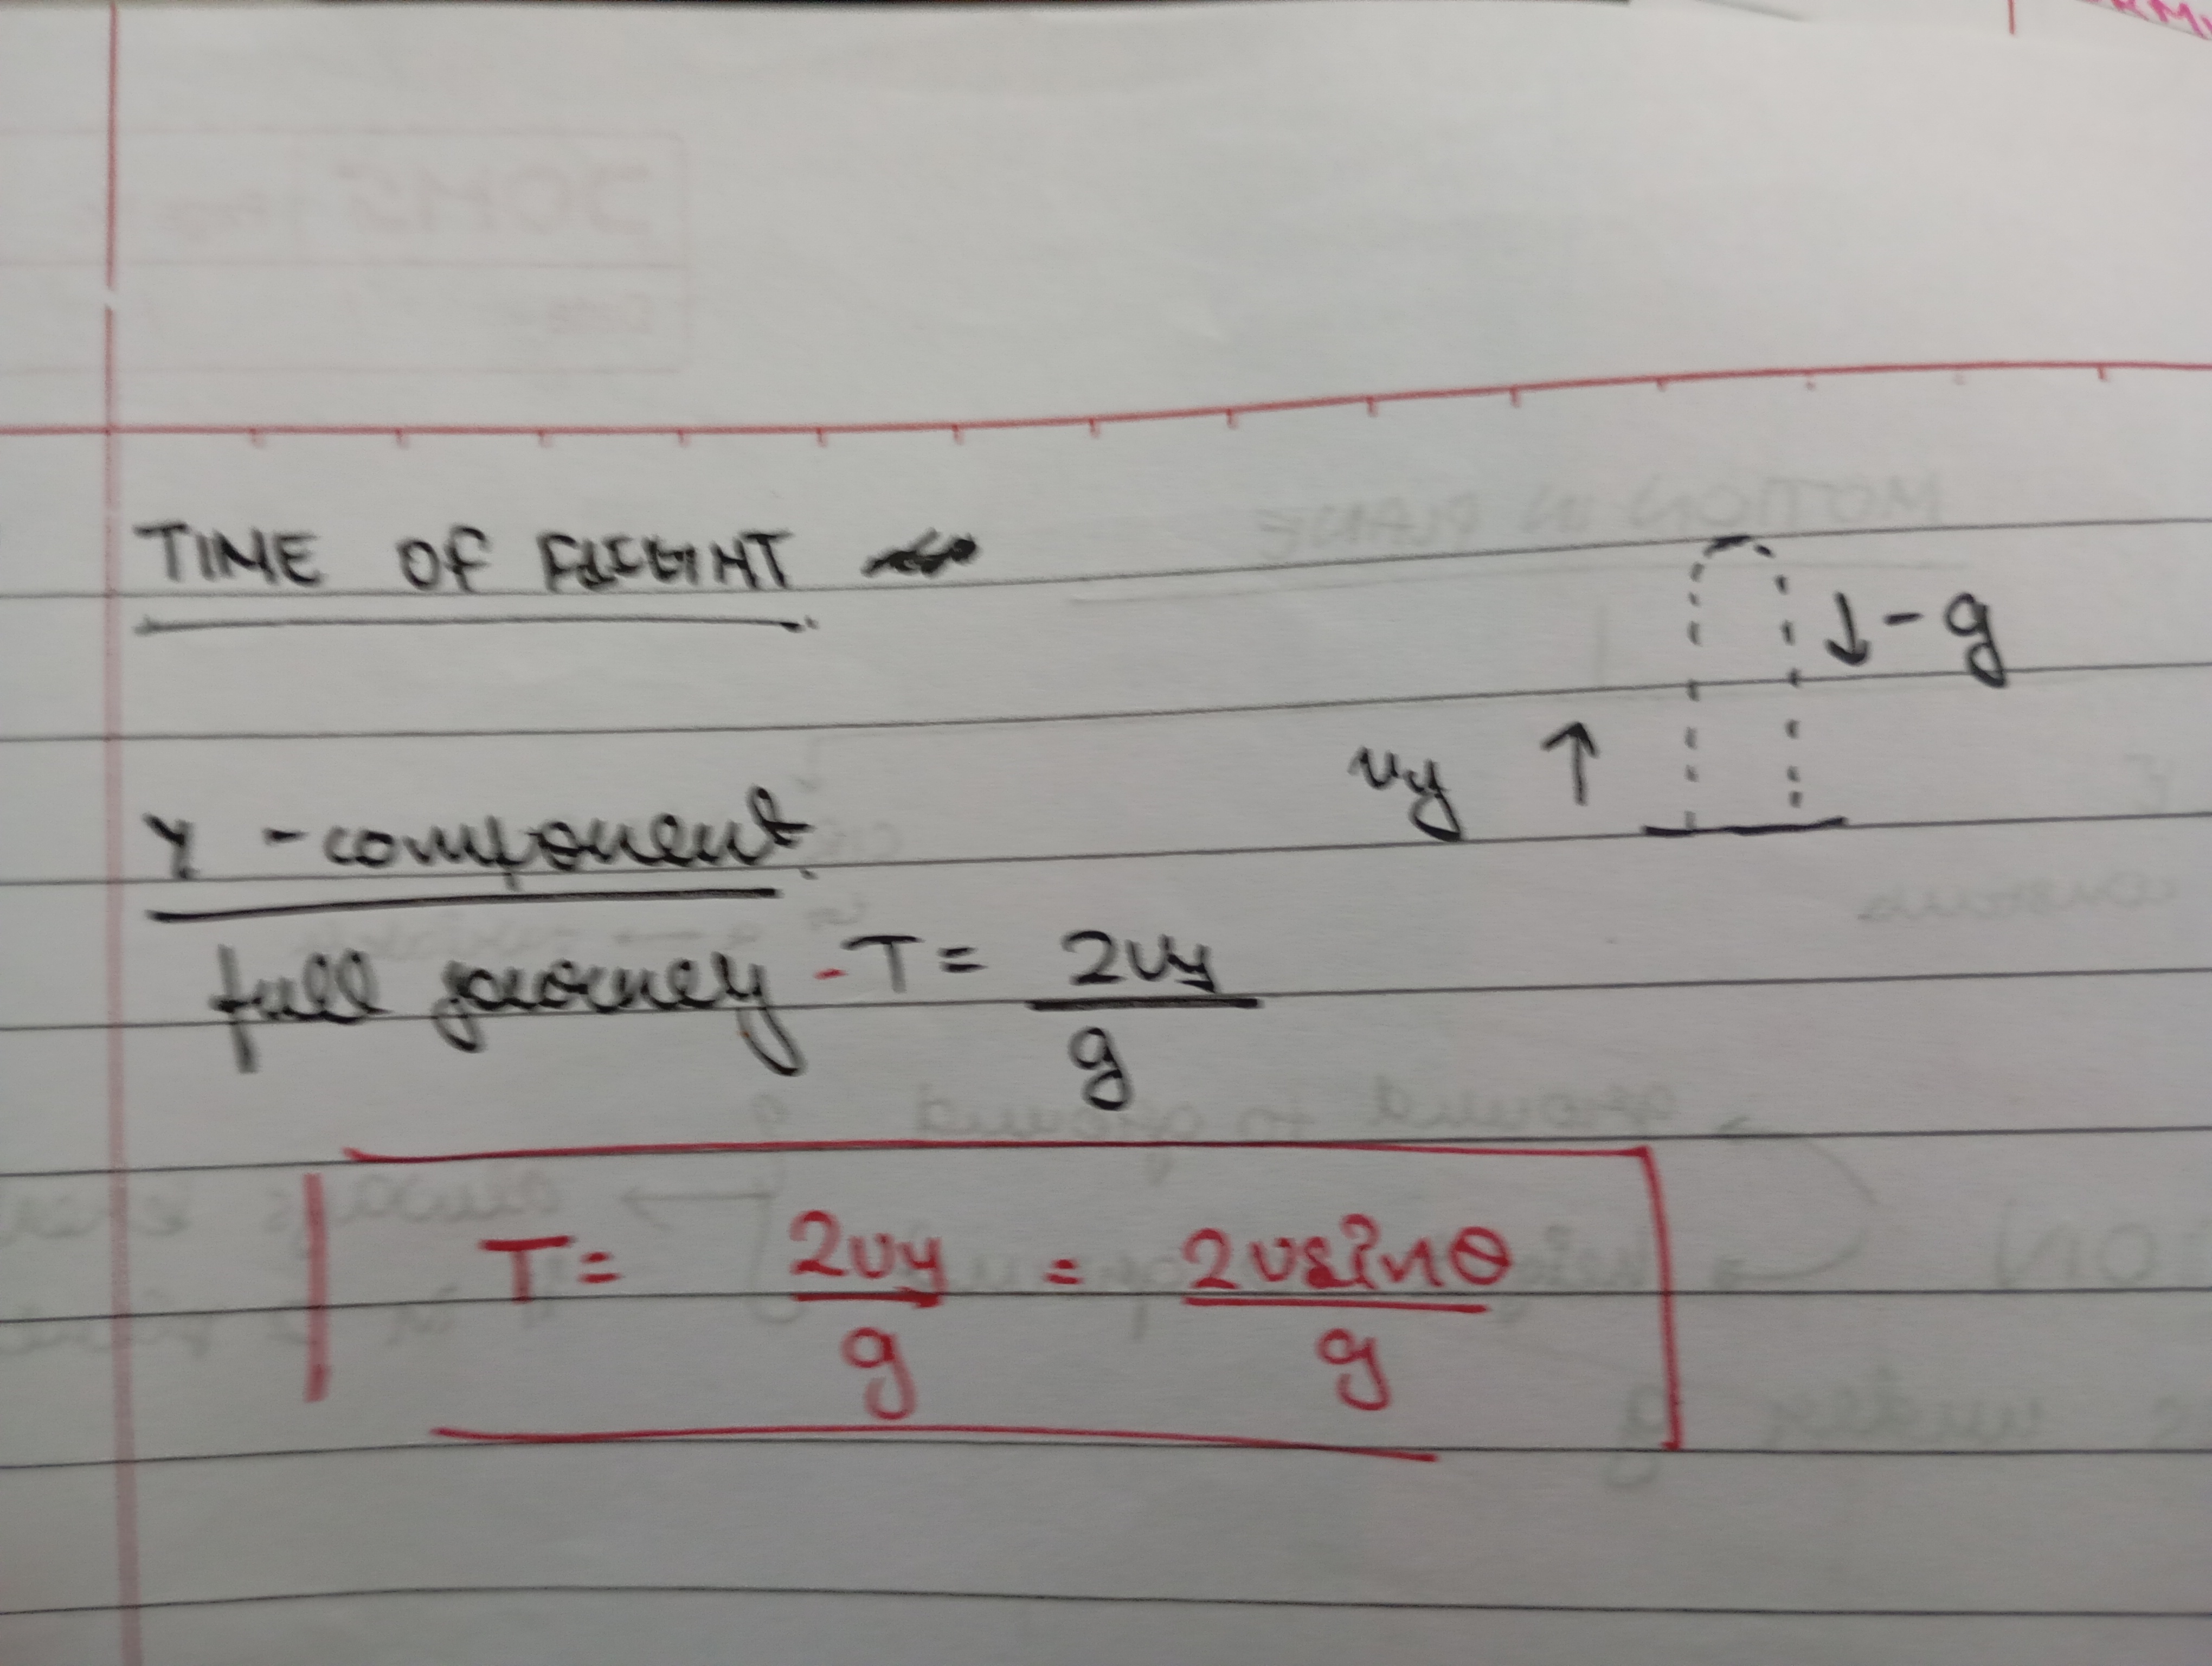 TIME OF FLIGHT
↓ - g
vy ↑
Y - component
full journey - T = 2vy / g
T = 2vy / g = 2vsinθ / g